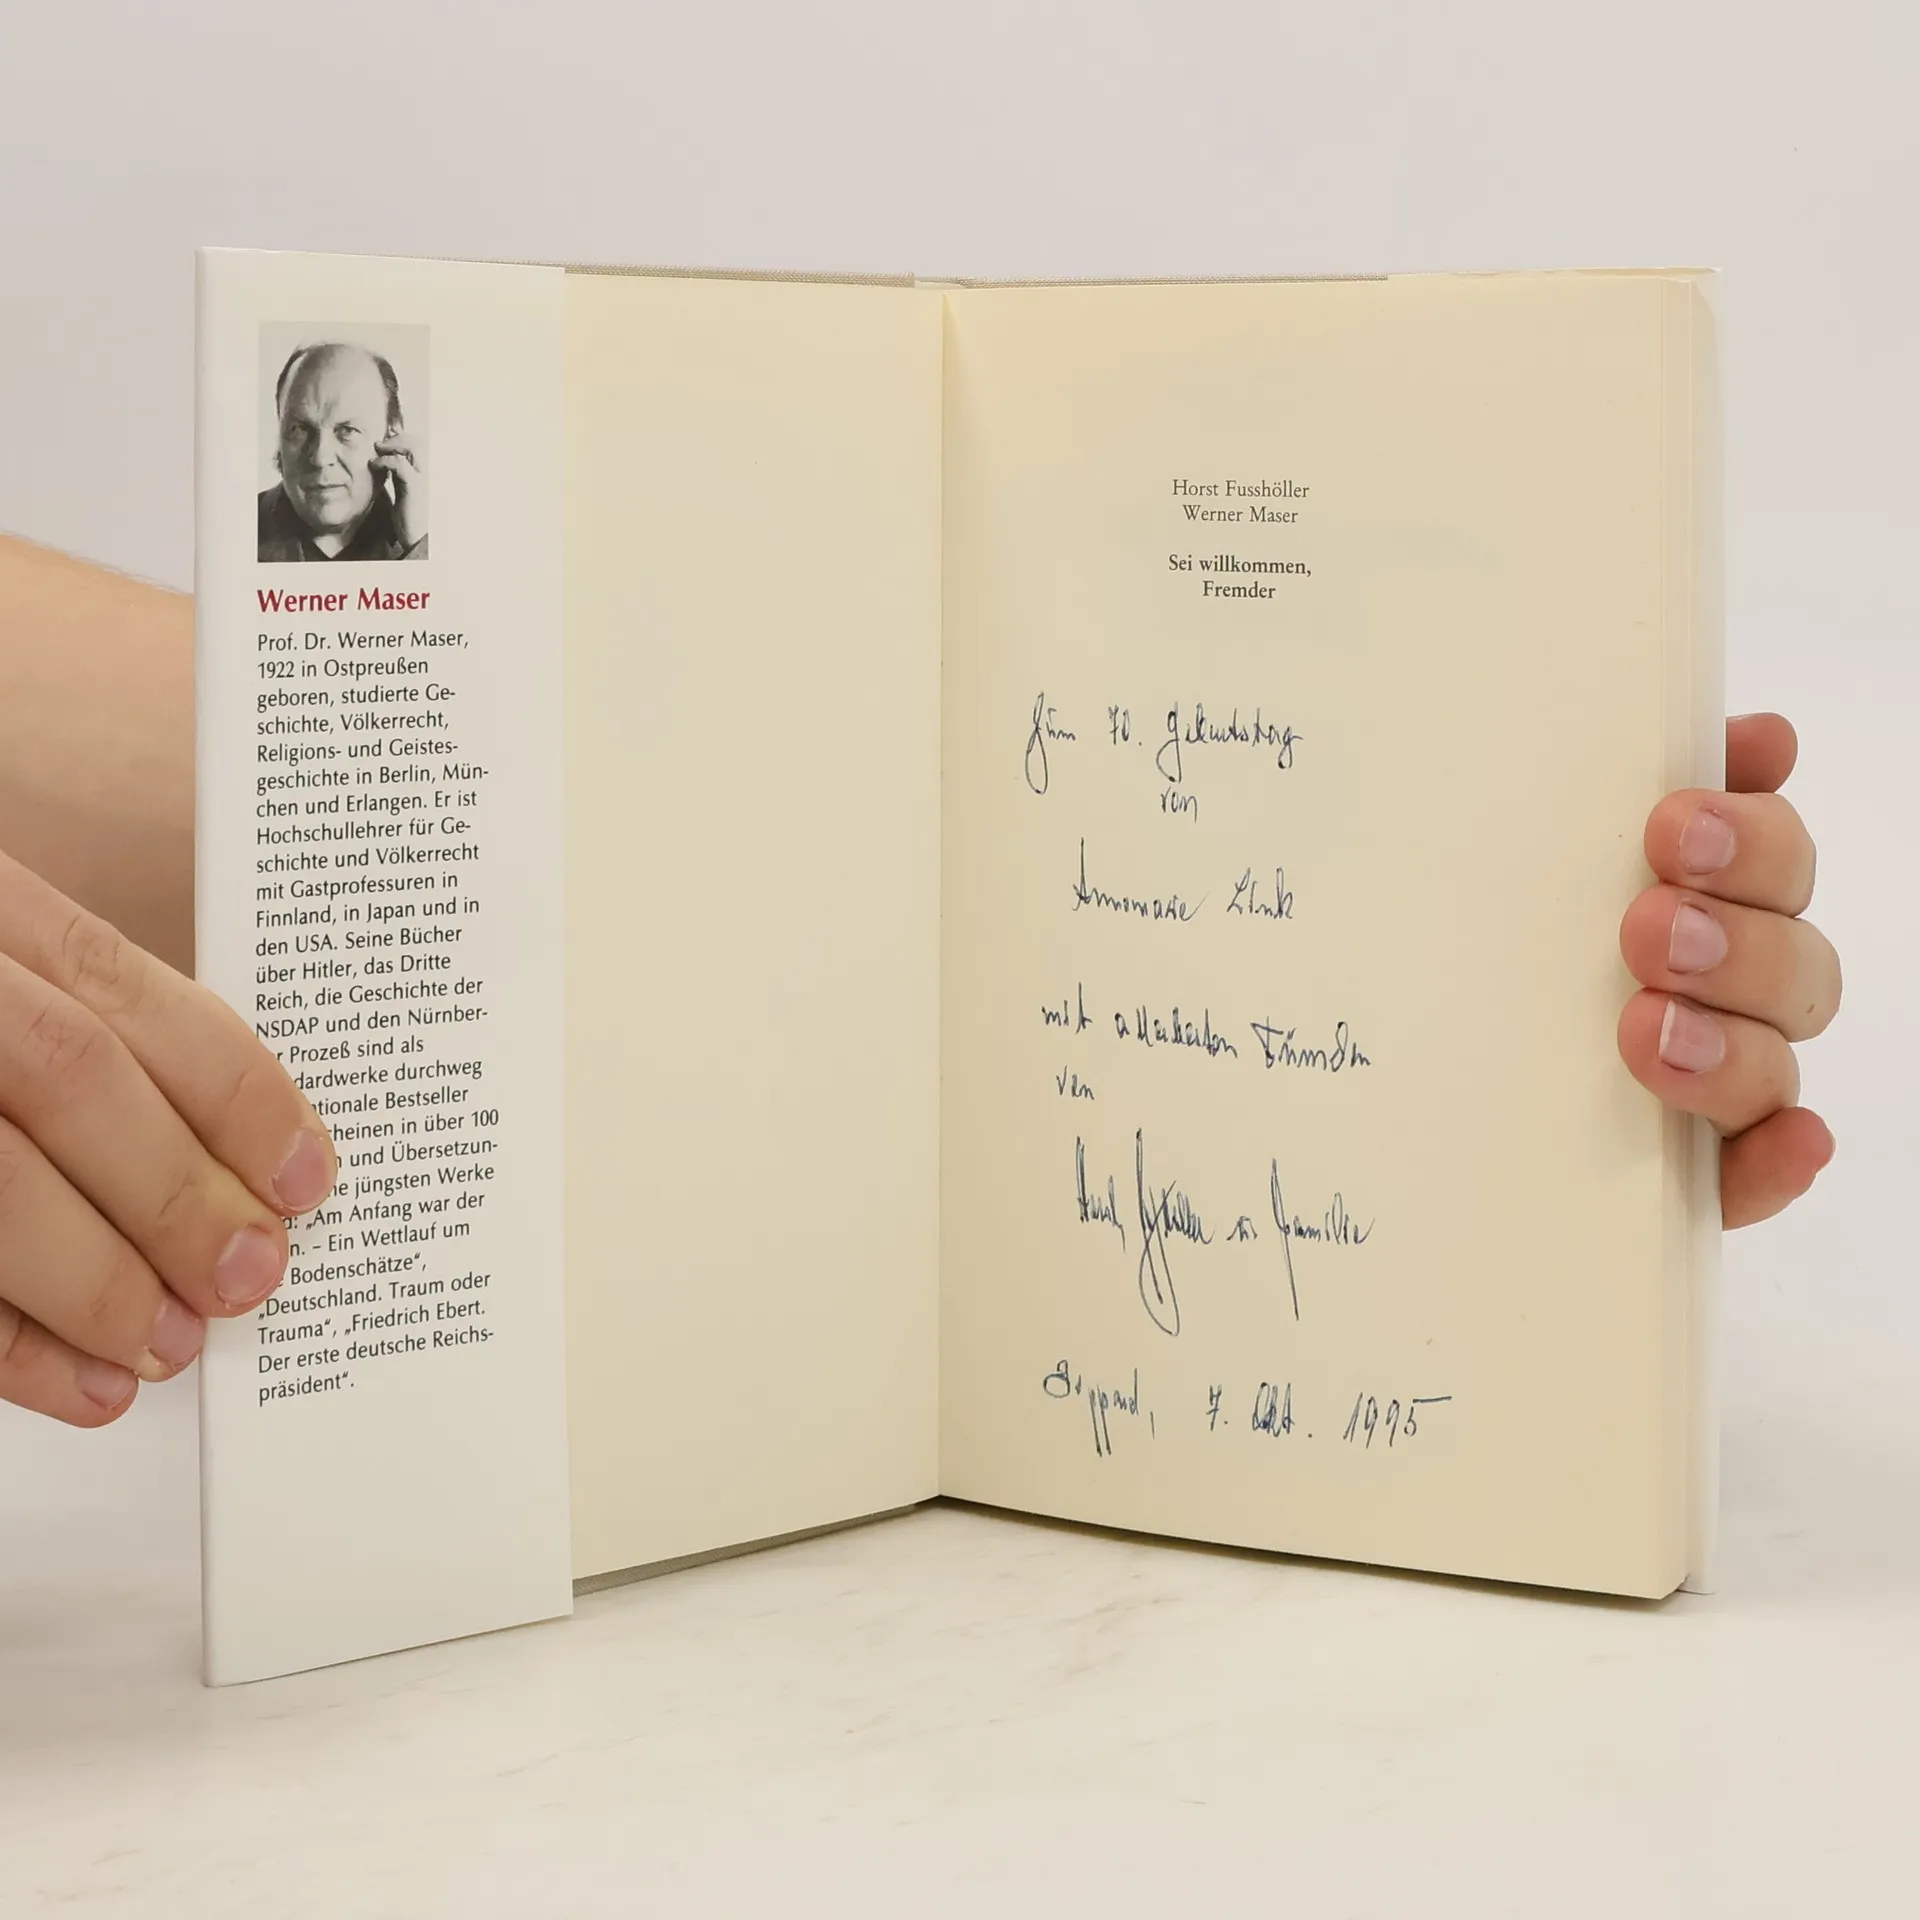 Werner Maser
Prof. Dr. Werner Maser,
1922 in Ostpreußen
geboren, studierte Ge-
schichte, Völkerrecht,
Religions- und Geistes-
geschichte in Berlin, Mün-
chen und Erlangen. Er ist
Hochschullehrer für Ge-
schichte und Völkerrecht
mit Gastprofessuren in
Finnland, in Japan und in
den USA. Seine Bücher
über Hitler, das Dritte
Reich, die Geschichte der
NSDAP und den Nürnber-
r Prozeß sind als
dardwerke durchweg
tionale Bestseller
heinen in über 100
n und Übersetzun-
ne jüngsten Werke
d: „Am Anfang war der
n. – Ein Wettlauf um
e Bodenschätze“,
„Deutschland. Traum oder
Trauma“, „Friedrich Ebert.
Der erste deutsche Reichs-
präsident“.
Horst Fusshöller
Werner Maser
Sei willkommen,
Fremder
Zum 70. Geburtstag
von
Annemarie Link
mit
von
Familie
Boppard, 7. Okt. 1995